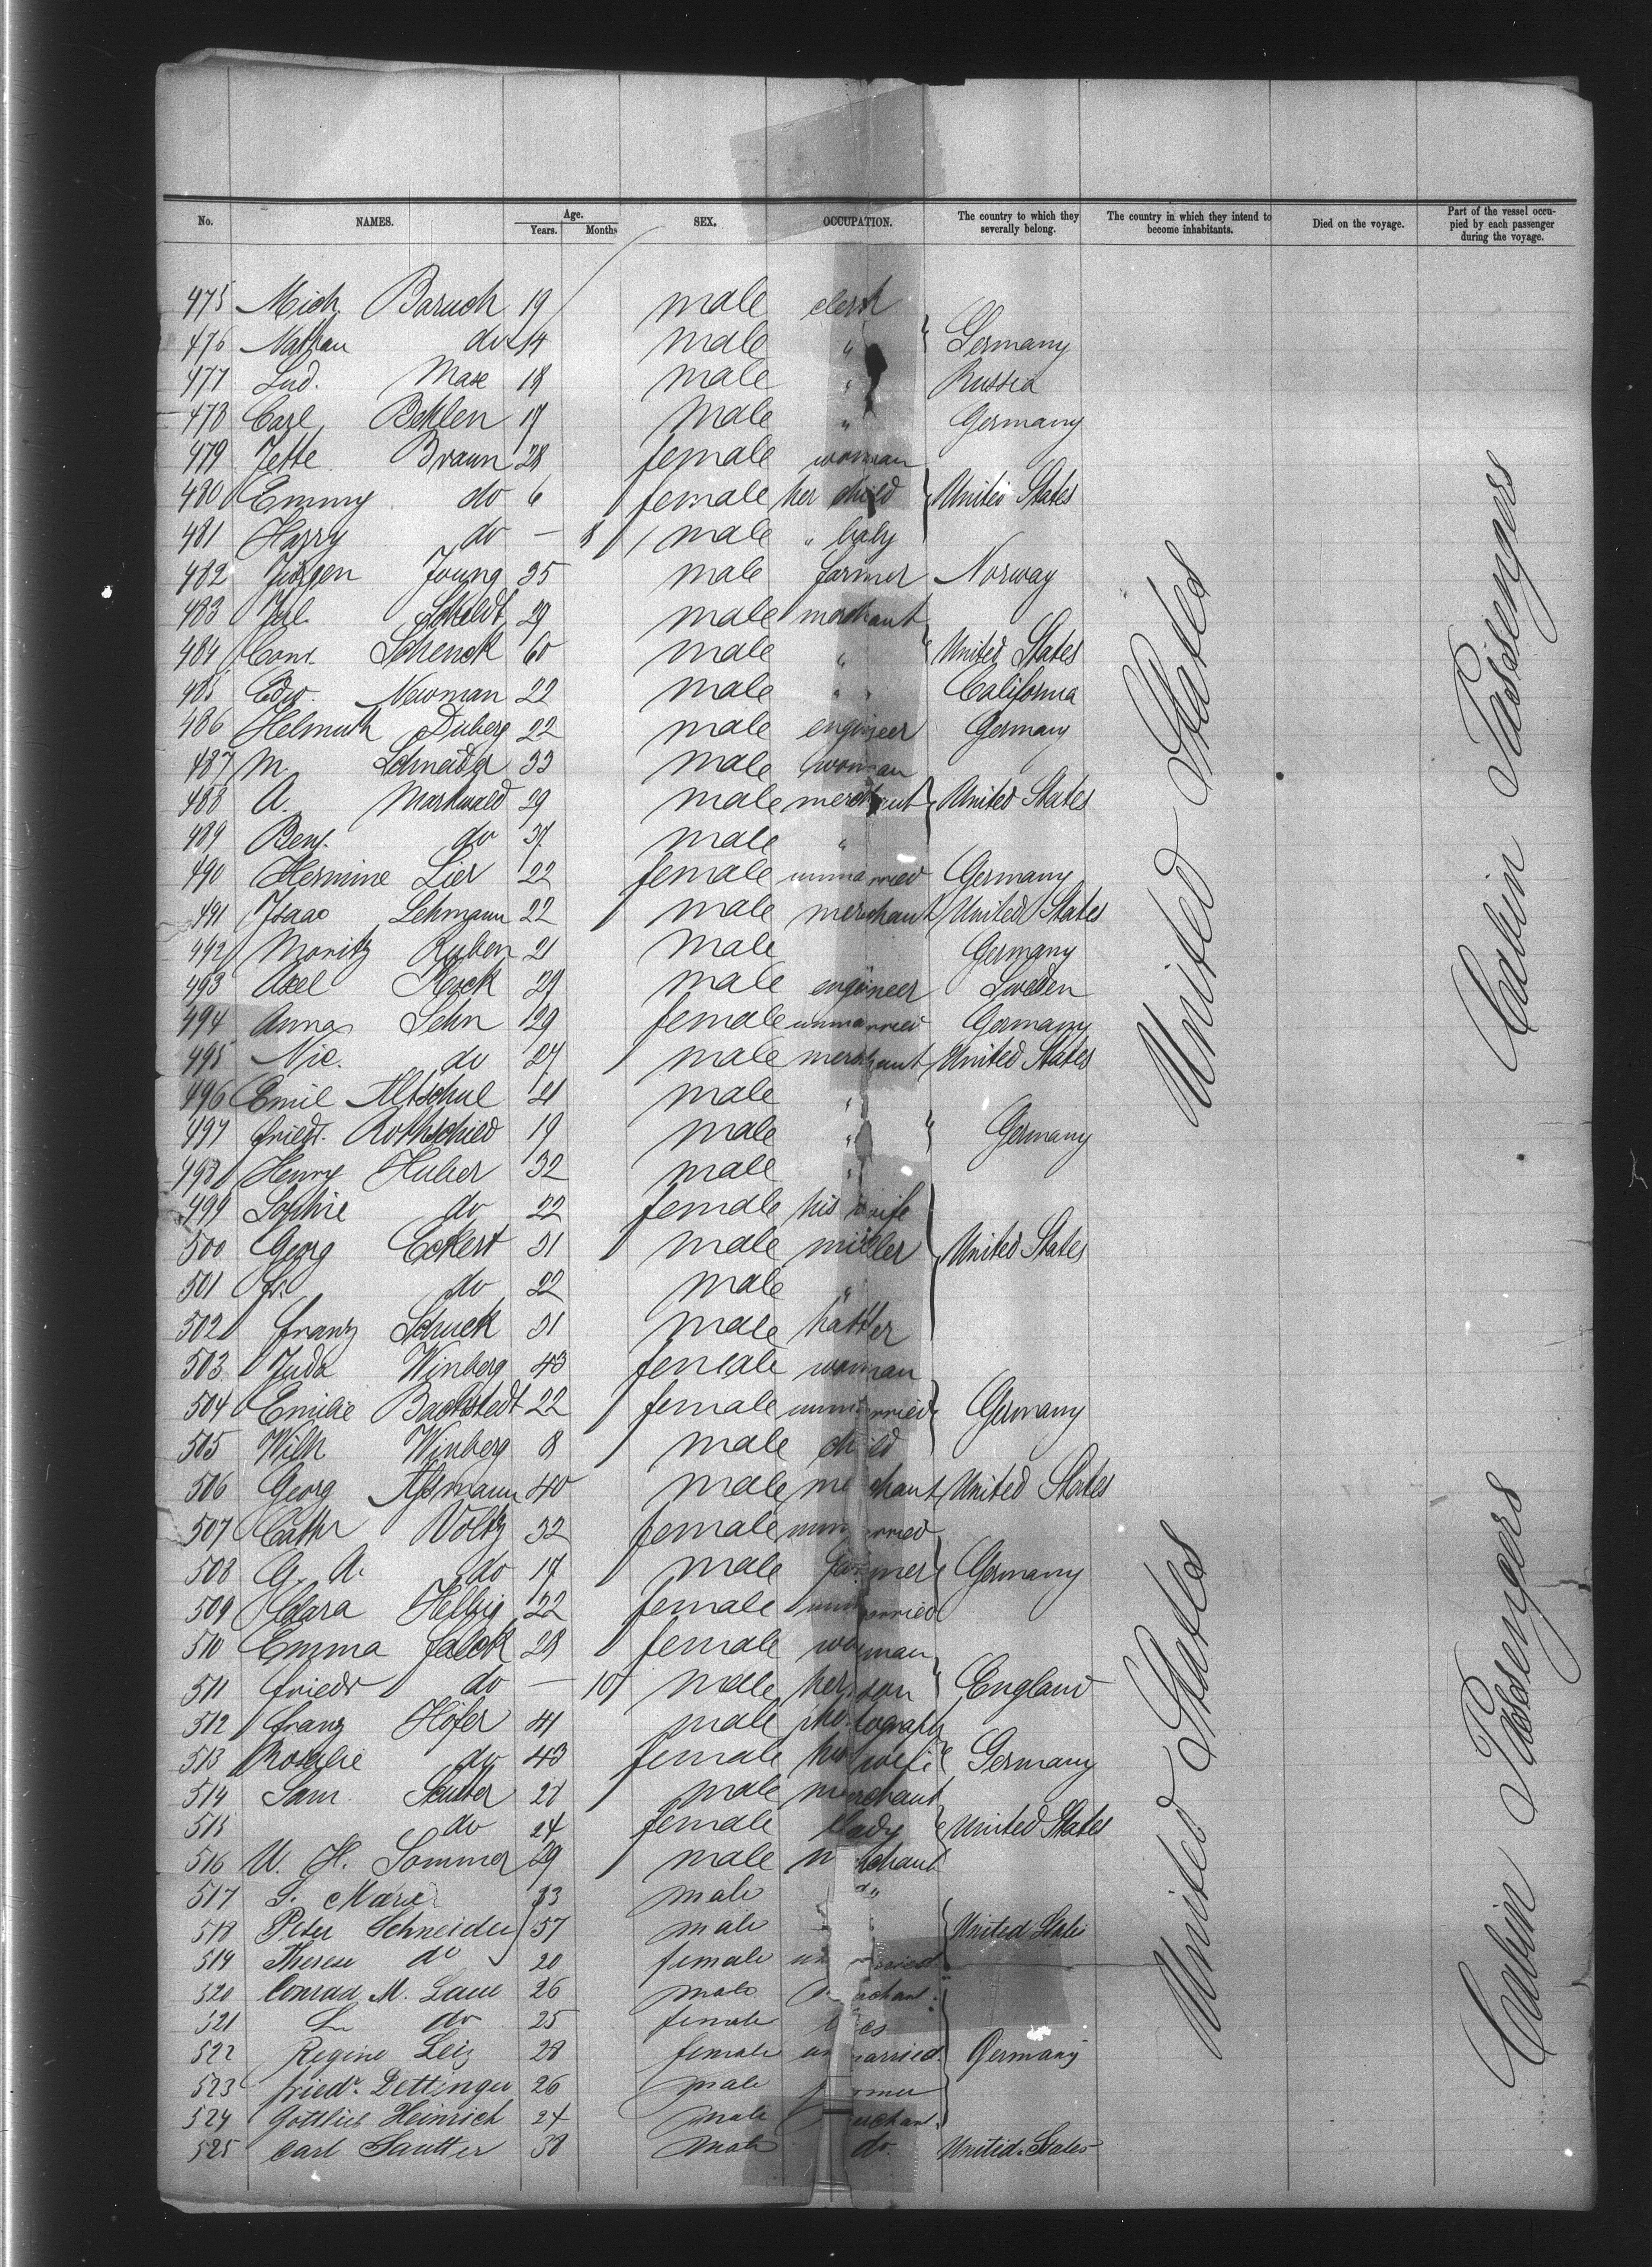 No. NAMES. Age. Years. Months SEX. OCCUPATION. The country to which they severally belong. The country in which they intend to become inhabitants. Died on the voyage. Part of the vessel occupied by each passenger during the voyage.
475 Mich. Baruch 19 male clerk
476 Nathan do 14 male " Germany
477 Lud. Mase 18 male " Russia
478 Carl Behlen 17 male " Germany
479 Jette Braun 28 female woman
480 Emmy do 6 female her child United States
481 Harry do — 8 male " baby
482 Jürgen Joung 35 male farmer Norway
483 Jul. 29 male merchant
484 Conr. Schenck 60 male " United States
485 Edw. Newman 22 male " " California
486 Helmuth Duberg 22 male engineer Germany
487 M. Schneider 33 male woman
488 A. Markwald 29 male merchant United States
489 Benj. do 37 male "
490 Hermine Lier 22 female unmarried Germany
491 Isaac Lehmann 22 male merchant United States
492 Moritz Ruben 21 male Germany
493 Axel 29 male engineer Sweden
494 Anna Sehn 29 female unmarried Germany
495 Nic. do 27 male merchant United States
496 Emil Altschul 21 male "
497 Friedr. Rothschild 19 male " Germany
498 Henry Huber 32 male "
499 Sophie do 22 female his wife
500 Georg Eckert 31 male miller United States
501 Fr. do 22 male "
502 Franz Schuck 31 male hatter
503 Juda Winberg 43 female woman
504 Emilie Bachstedt 22 female unmarried Germany
505 Wilh Winberg 8 male child
506 Georg Assmann 40 male merchant United States
507 Cathr Voltz 32 female unmarried
508 G. A. do 17 male farmer Germany
509 Clara Helbig 22 female unmarried
510 Emma Falck 28 female woman
511 Friedr do — 10 male her son England
512 Franz Höfer 41 male photograph
513 Rosalie do 43 female his wife Germany
514 Sam. Sauter 28 male merchant
515 do 24 female lady United States
516 W. H. Sommer 29 male merchant
517 S. Marx 33 male "
518 Peter Schneider 57 male United States
519 Therese do 20 female unmarried
520 Conrad M. Laue 26 male merchant
521 L do 25 female
522 Regine Leiz 28 female unmarried Germany
523 Friedr. Dettinger 26 male farmer
524 Gottlieb Heinrich 24 male merchant
525 Carl Sautter 38 male do. United States
United States
United States
Cabin Passengers
Cabin Passengers